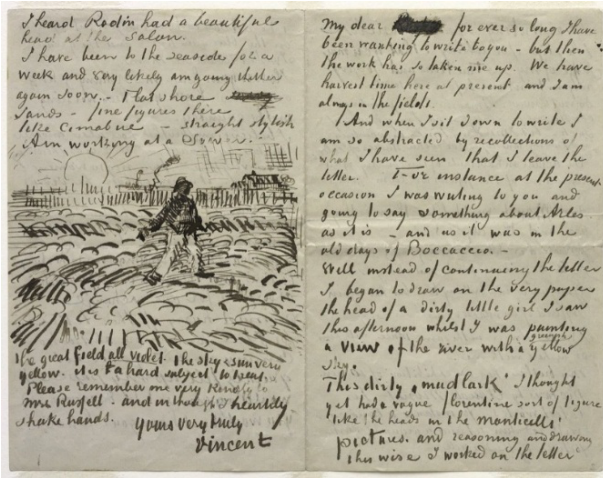 I heard Rodin had a beautiful
head at the salon.
I have been to the seaside for a
week and very likely am going thither
again soon. - Flat shore
sands - fine figures there
like Cimabue - straight stylish
Am working at a Sower.
the great field all violet the sky & sun very
yellow. it is a hard subject to treat.
Please remember me very kindly to
Mrs Russell. and in thought I heartily
shake hands.
Yours very truly
Vincent
My dear for ever so long I have
been wanting to write to you - but then
the work has so taken me up. We have
harvest time here at present and I am
always in the fields.
And when I sit down to write I
am so abstracted by recollections of
what I have seen that I leave the
letter. For instance at the present
occasion I was writing to you and
going to say something about Arles
as it is - and as it was in the
old days of Boccaccio. -
Well instead of continuing the letter
I began to draw on the very paper
the head of a dirty little girl I saw
this afternoon whilst I was painting
a view of the river with a greenish yellow
sky.
This dirty "mudlark" I thought
yet had a vague florentine sort of figure
like the heads in the monticelli
pictures. and reasoning and drawing
this wise I worked on the letter